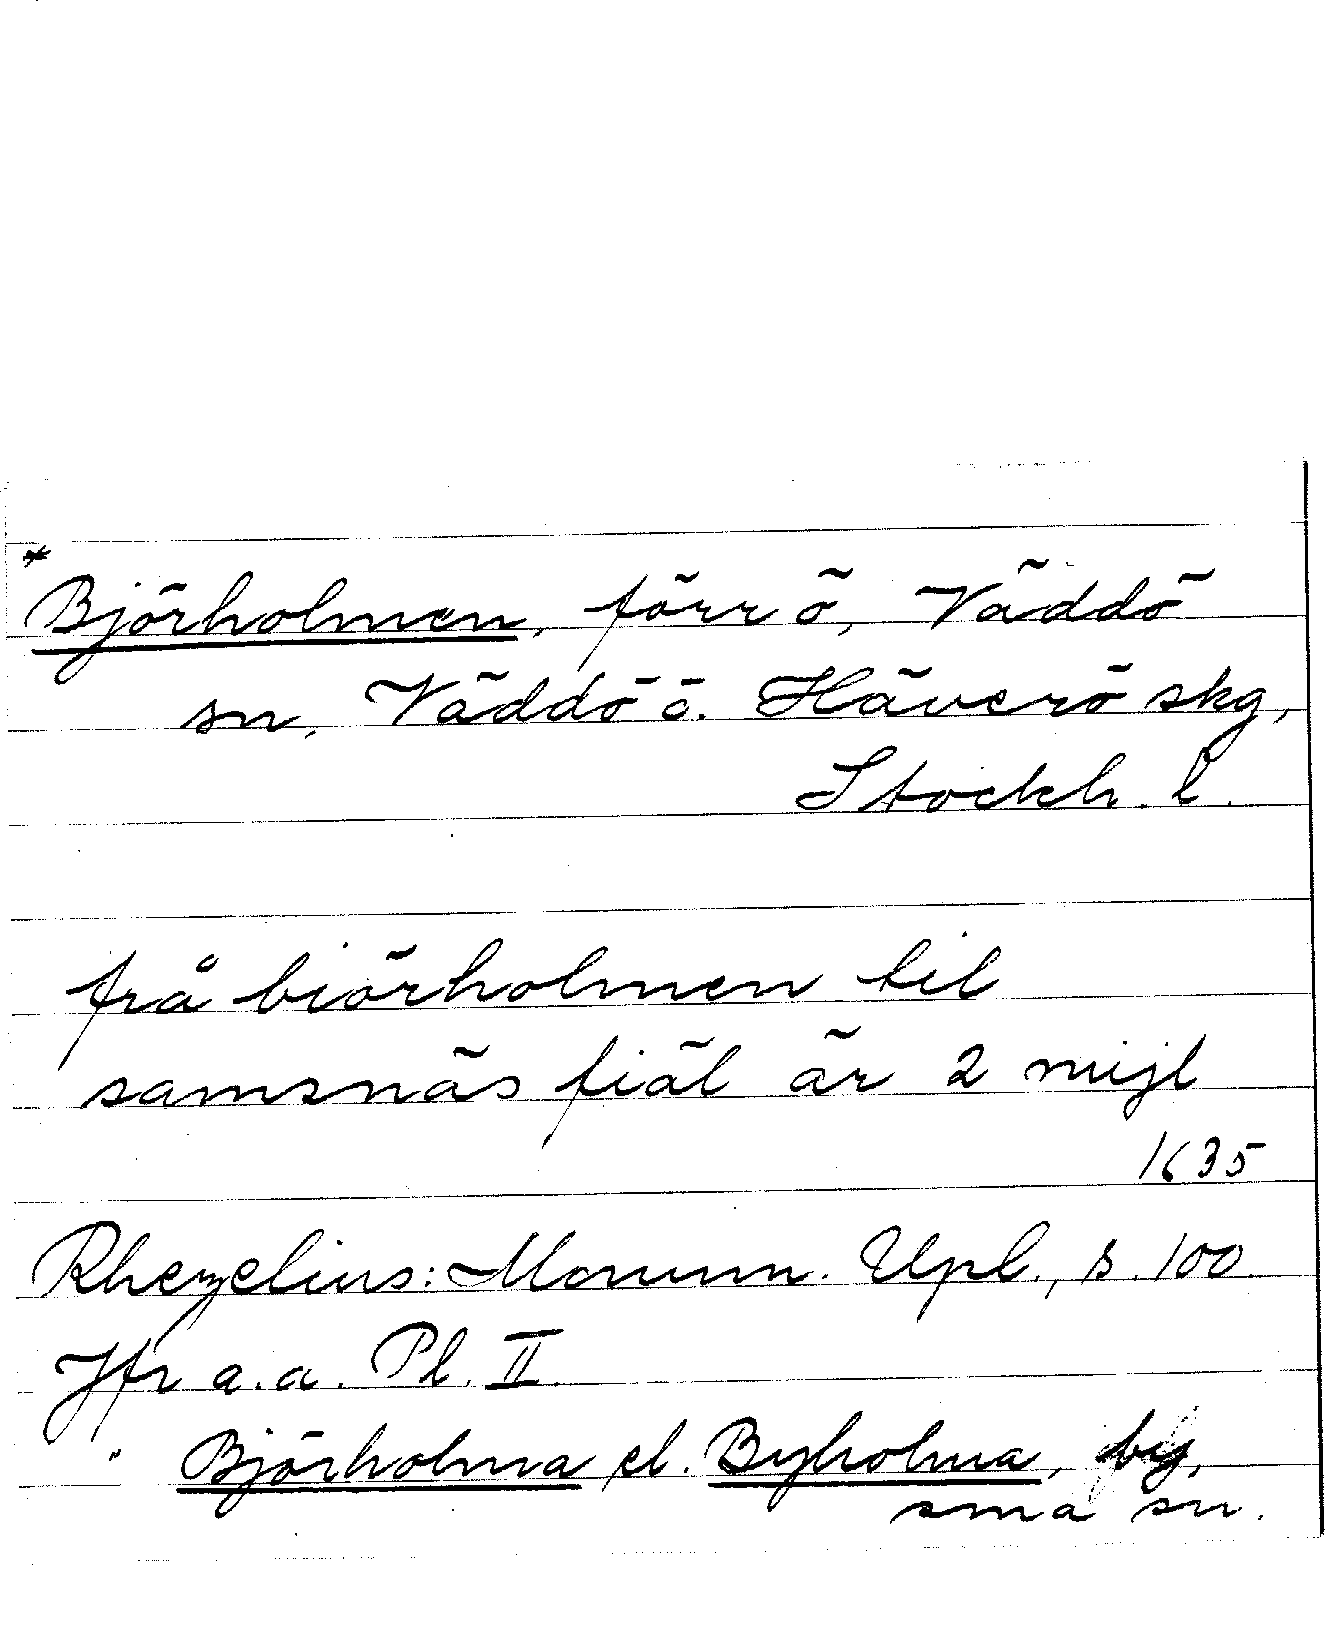 *
Björholmen, förr ö, Väddö
sn, Väddö o. Häverö skg,
Stockh. l.
frå biörholmen til
samsnäs fiäl är 2 mijl
1635
Rhezelius: Monum. Upl., s. 100
Jfr a.a. Pl. II
" Björholma el. Byholma, by,
sma sn.